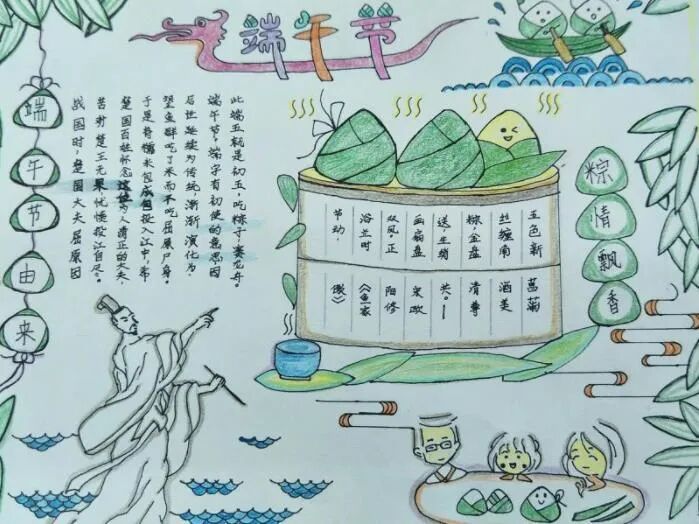 端午节
端午节由来
战国时，楚国大夫屈原因
苦劝楚王无果，忧愤投江自尽。
楚国百姓怀念这位为人清正的大夫，
于是将糯米包成包投入江中，希
望鱼群吃了米而不吃屈原尸身。
后世延续为传统渐渐演化为
端午节，端字有初使的意思因
此端五就是初五，吃粽子，赛龙舟。
五色新
丝缠角
粽，金盘
送，生绡
画扇盘
双凤。正
浴兰时
节动，
菖菊
酒美
清尊
共。—
宋欧
阳修
《鱼家
傲》
粽情飘香